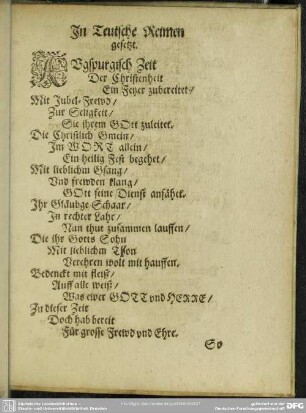 In Teutsche Reimen
gesetzt.
AVgspurgisch Zeit
Der Christenheit
Ein Feyer zubereitet/
Mit Jubel-Frewd/
Zur Seligkeit/
Sie ihrem GOtt zuleitet.
Die Christlich Gmein/
Im WORT allein/
Ein heilig Fest begehet/
Mit lieblichm Gsang/
Vnd frewden klang/
GOtt seine Dienst anfähet.
Ihr Gläubge Schaar/
In rechter Lahr/
Nun thut zusammen lauffen/
Die ihr Gotts Sohn
Mit lieblichm Thon
Verehren wolt mit hauffen.
Bedenckt mit fleiß/
Auff alle weiß/
Was ewer GOTT vnd HERRE/
Zu dieser Zeit
Doch hab bereit
Für grosse Frewd vnd Ehre.
So